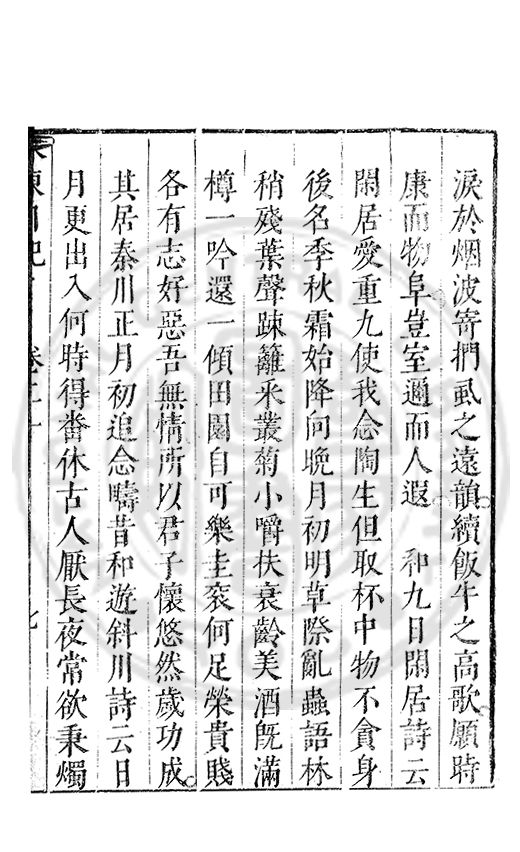 淚於烟波寄捫虱之遠韻續飯牛之高歌願時
康而物阜豈室邇而人遐　和九日閑居詩云
閑居愛重九使我念陶生但取杯中物不貪身
後名季秋霜始降向晩月初明草際亂蟲語林
稍殘葉聲踈籬采叢菊小嚼扶衰齡美酒旣滿
樽一吟還一傾田園自可樂圭衮何足榮貴賤
各有志好惡吾無情所以君子懷悠然歲功成
其居秦川正月初追念疇昔和遊斜川詩云日
月更出入何時得畨休古人厭長夜常欲秉燭